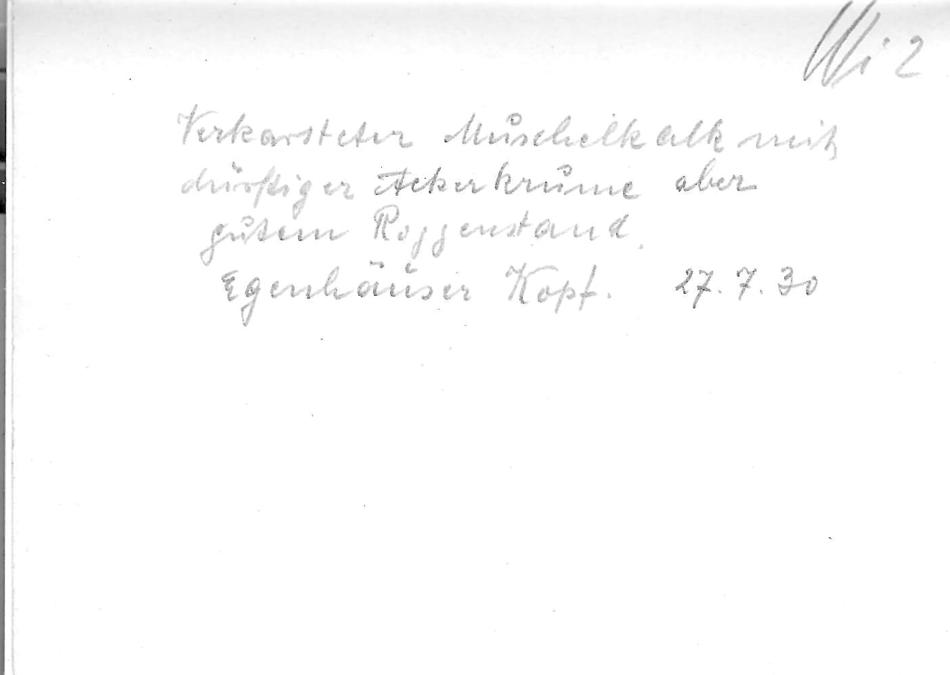 Wi 2
Verkarsteter Muschelkalk mit
dürftiger Ackerkrume aber
gutem Roggenstand.
Egenhäuser Kopf. 27.7.30